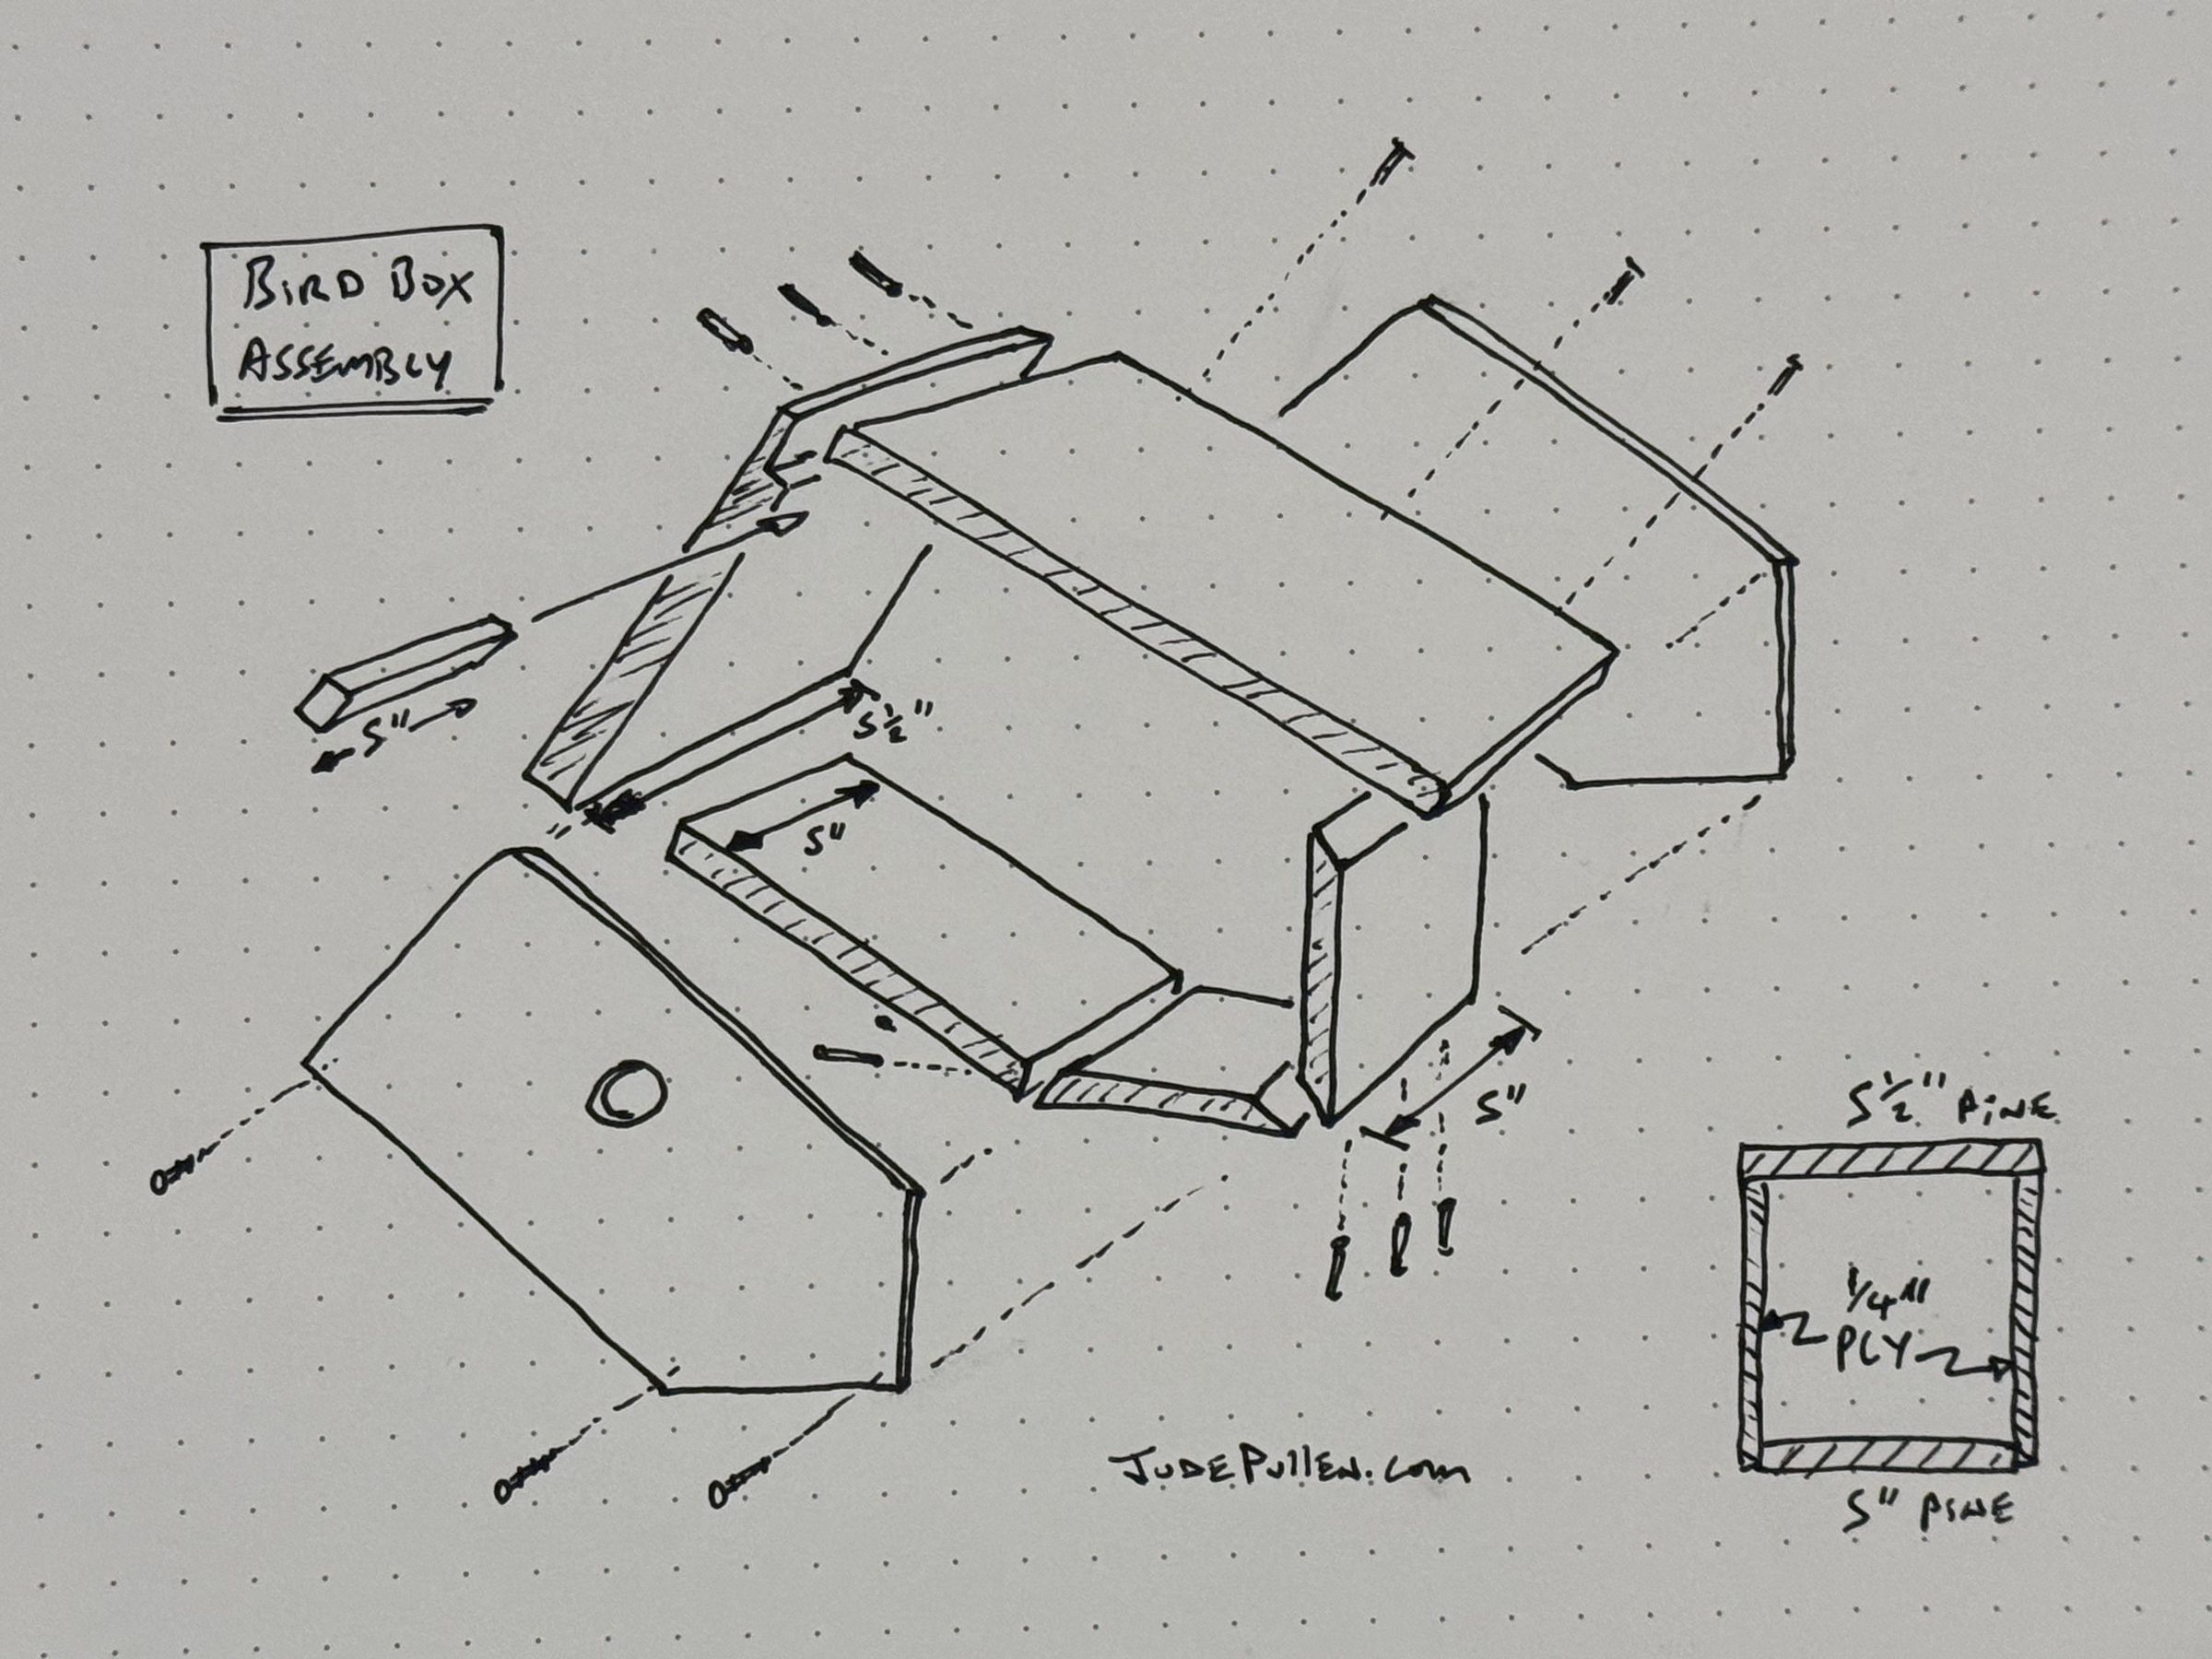 BIRD BOX
ASSEMBLY
5"
5½"
5"
5"
5½" PINE
¼"
PLY
5" PINE
JUDEPULLEN.COM